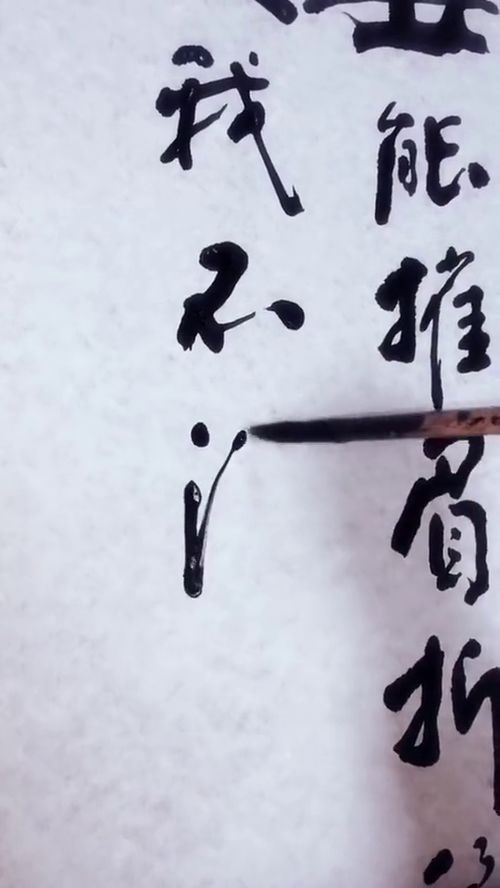 能摧眉折
我不